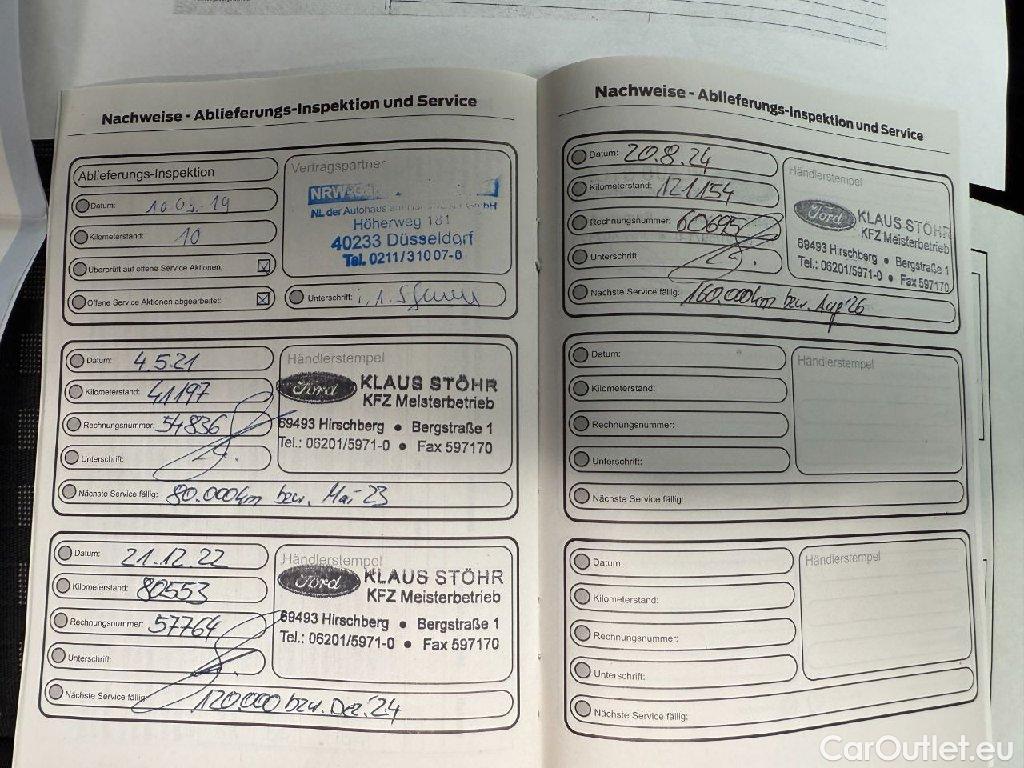 Nachweise - Ablieferungs-Inspektion und Service
Ablieferungs-Inspektion
Datum: 19
Kilometerstand: 10
Überprüft auf offene Service Aktionen:
Offene Service Aktionen abgearbeitet:
Vertragspartner
NRW
NL der Autohaus
Höherweg 181
40233 Düsseldorf
Tel. 0211/31007-0
Unterschrift:
Datum: 4.5.21
Kilometerstand: 41197
Rechnungsnummer: 54836
Unterschrift:
Nächste Service fällig: 80.000km bzw. Mai 23
Händlerstempel
Ford KLAUS STÖHR
KFZ Meisterbetrieb
69493 Hirschberg • Bergstraße 1
Tel.: 06201/5971-0 • Fax 597170
Datum: 21.12.22
Kilometerstand: 80553
Rechnungsnummer: 57764
Unterschrift:
Nächste Service fällig: 120.000 bzw. Dez. 24
Händlerstempel
Ford KLAUS STÖHR
KFZ Meisterbetrieb
69493 Hirschberg • Bergstraße 1
Tel.: 06201/5971-0 • Fax 597170
Nachweise - Ablieferungs-Inspektion und Service
Datum: 20.8.24
Kilometerstand: 121154
Rechnungsnummer: 60695
Unterschrift
Nächste Service fällig: 160.000km bzw. Aug 26
Händlerstempel
Ford KLAUS STÖHR
KFZ Meisterbetrieb
69493 Hirschberg • Bergstraße 1
Tel.: 06201/5971-0 • Fax 597170
Datum:
Kilometerstand:
Rechnungsnummer:
Unterschrift:
Nächste Service fällig:
Händlerstempel
Datum
Kilometerstand:
Rechnungsnummer:
Unterschrift:
Nächste Service fällig:
Händlerstempel
CarOutlet.eu